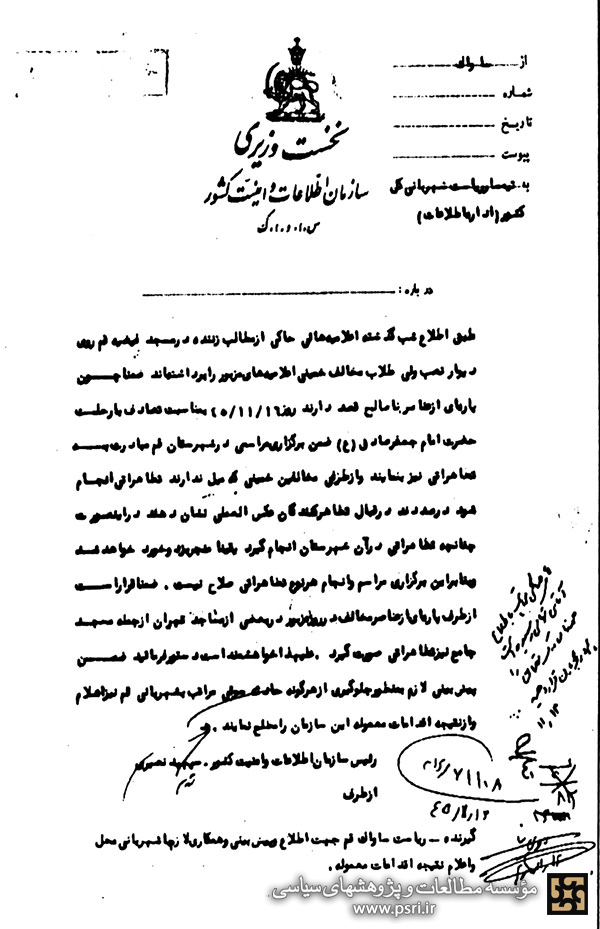 از ساواك
شماره
تاریخ
پیوست
به تیمسار ریاست شهربانی کل
کشور (اداره اطلاعات)
نخست وزیری
سازمان اطلاعات و امنیت کشور
س.ا.و.ا.ک
درباره :
طبق اطلاع شب گذشته اعلامیه‌هائی حاکی از مطالب زننده در مسجد فیضیه قم روی
دیوار نصب ولی طلاب مخالف خمینی اعلامیه‌های مزبور را برداشته‌اند ضمنا چون
پاره‌ای از عناصر ناصالح قصد دارند روز ۴۵/۱۱/۱۶ بمناسبت تصادف با رحلت
حضرت امام جعفر صادق (ع) ضمن برگزاری مراسمی در شهرستان قم مبادرت به
تظاهراتی نیز بنمایند و از طرفی مخالفین خمینی که میل ندارند تظاهراتی انجام
شود در صددند در قبال تظاهرکنندگان عکس العملی نشان دهند در اینصورت
چنانچه تظاهراتی در آن شهرستان انجام گیرد یقینا منجر بزد و خورد خواهد شد
و بنابراین برگزاری مراسم و انجام هر نوع تظاهراتی صلاح نیست . ضمنا قرار است
از طرف پاره‌ای از عناصر مخالف در روز مزبور در بعضی از مساجد تهران از جمله مسجد
جامع نیز تظاهراتی صورت گیرد . علیهذا خواهشمند است دستور فرمائید ضمن
پیش بینی لازم بمنظور جلوگیری از هرگونه حادثه سوئی مراتب بشهربانی قم نیز اعلام
و از نتیجه اقدامات معموله این سازمان را مطلع نمایند .
رئیس سازمان اطلاعات و امنیت کشور . سپهبد نصیری
از طرف
گیرنده - ریاست ساواك قم جهت اطلاع و پیش بینی و همکاری لازم با شهربانی محل
و اعلام نتیجه اقدامات معموله .
مؤسسه مطالعات و پژوهشهای سیاسی
www.psri.ir